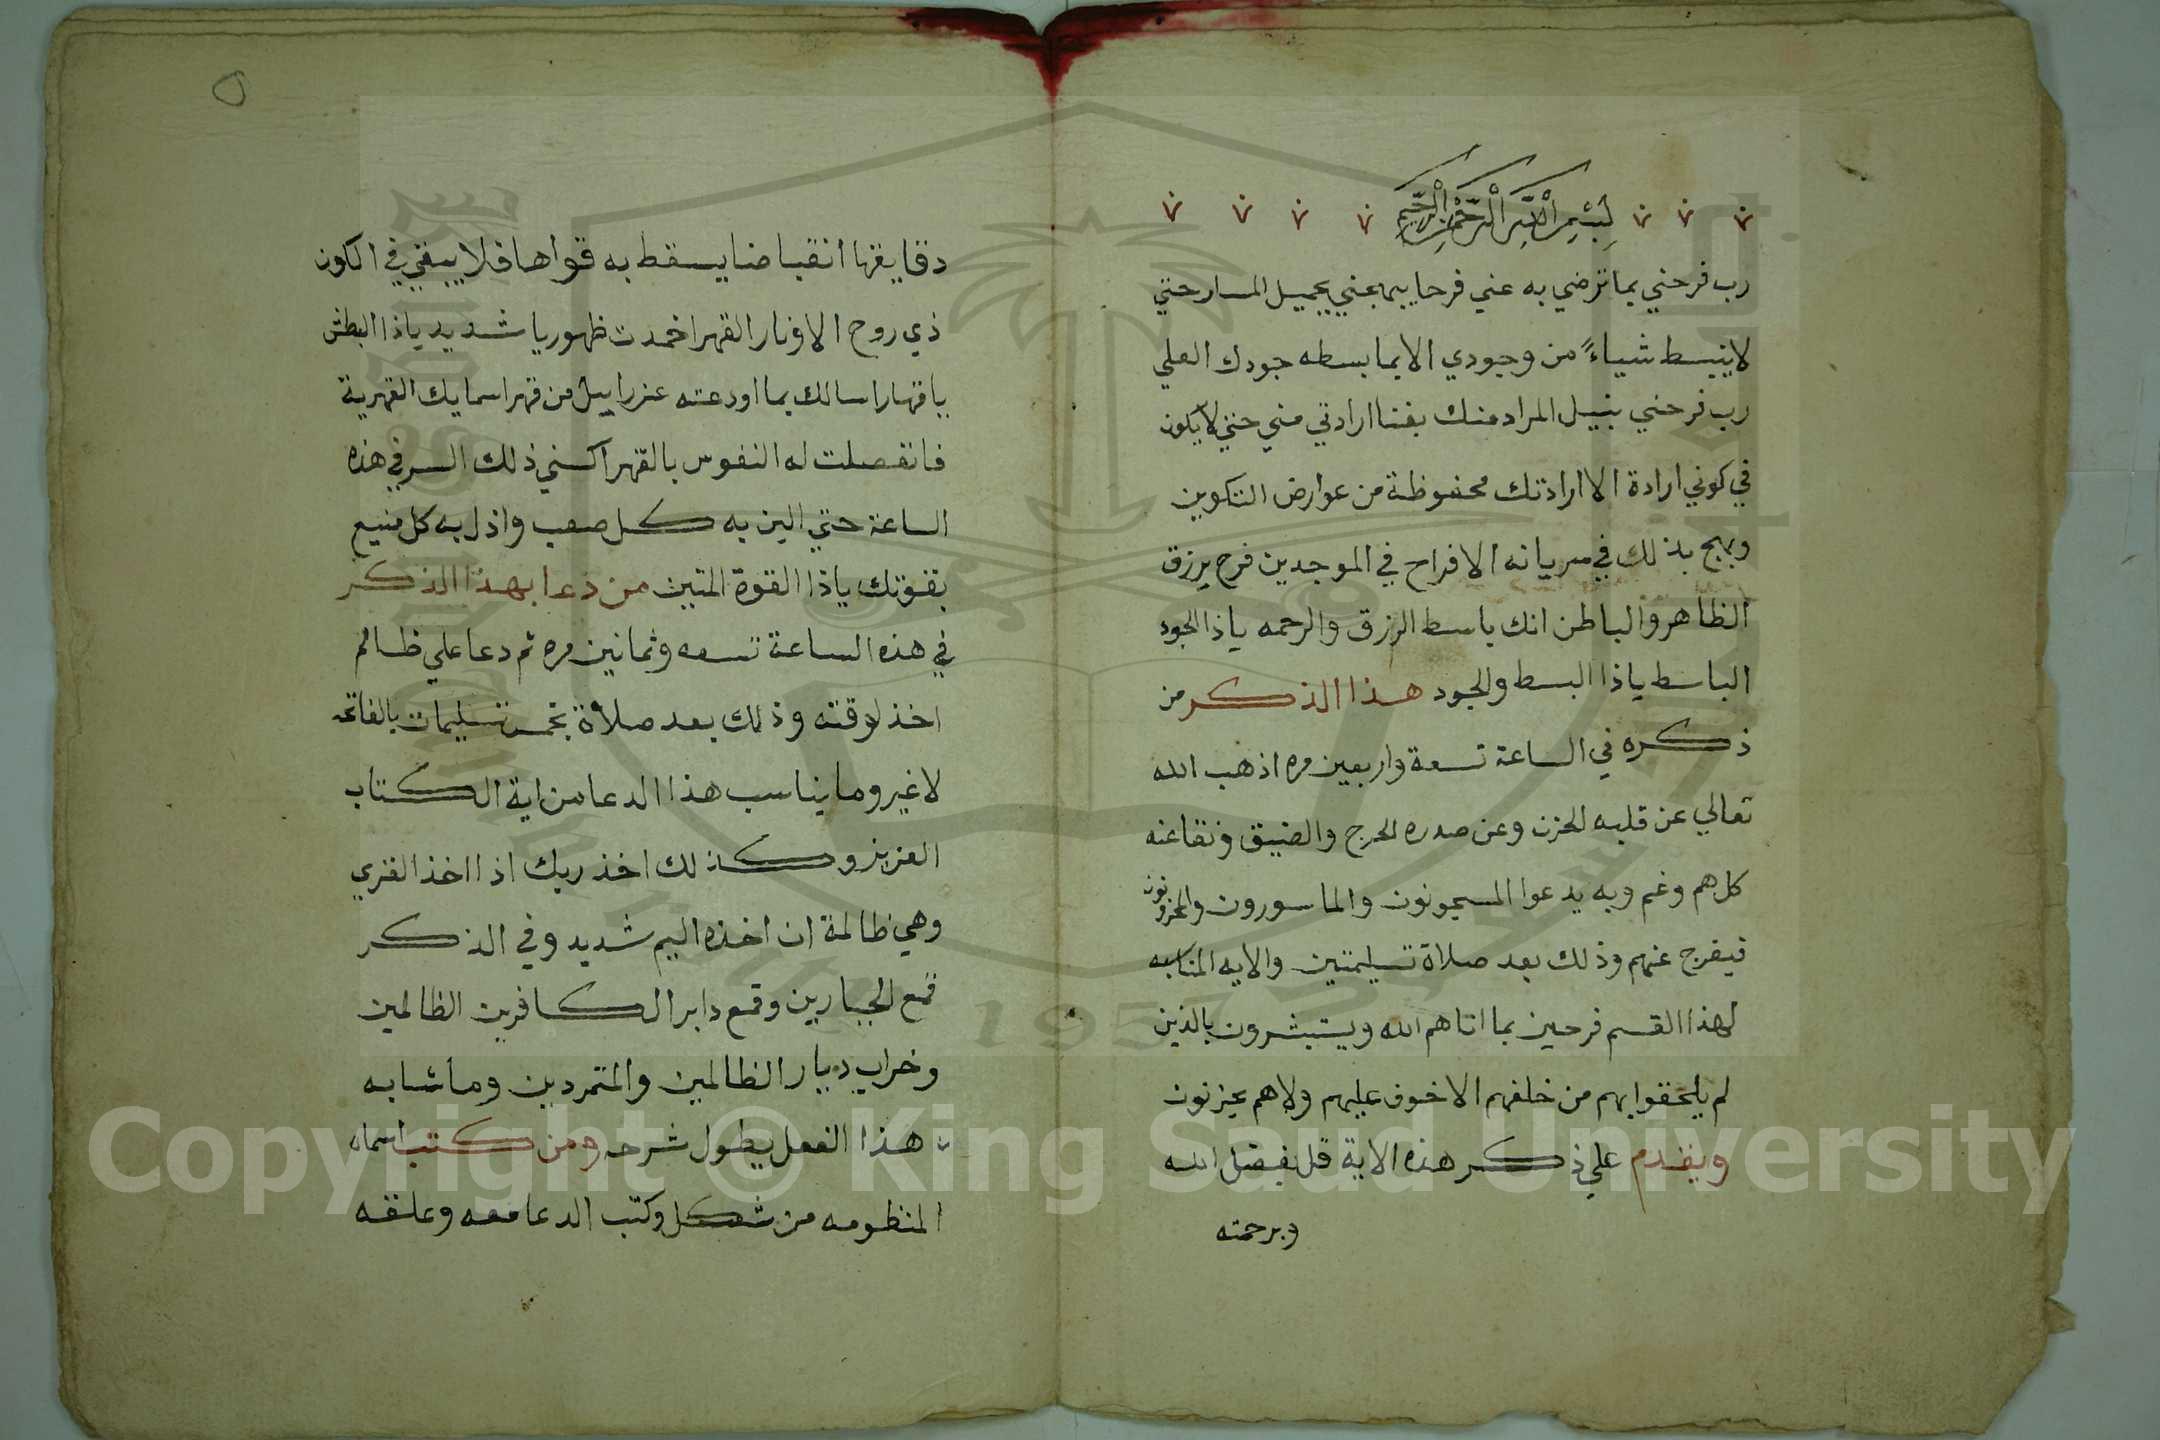 بسم الله الرحمن الرحيم
رب فرحني بما ترضي به عني فرحا يبهجني بجميل المسار حتي
لا ينبسط شياءً من وجودي الا بما بسطه جودك العلي
رب فرحني بنيل المراد منك بفنا ارادتي مني حتي لا يكون
في كوني ارادة الا ارادتك محفوظة من عوارض التكوين
وبهج بذلك في سريانه الافراح في الموجدين فرح برزق
الظاهر والباطن انك باسط الرزق والرحمه ياذا الجود
الباسط ياذا البسط والجود هذا الذكر من
ذكره في الساعة تسعة واربعين مره اذهب الله
تعالي عن قلبه الحزن وعن صدره الحرج والضيق ونقاعنه
كل هم وغم وبه يدعوا المسجونون والماسورون والمحزونون
فيفرج عنهم وذلك بعد صلاة تسليمتين والايه المناسبه
لهذا القسم فرحين بما اتاهم الله ويستبشرون بالذين
لم يلحقوا بهم من خلفهم الا خوف عليهم ولاهم يحزنون
ويقدم علي ذكر هذه الاية قل بفضل الله
وبرحمته
٥
دقايقها انقباضا يسقط به قواها فلا يبقي في الكون
ذي روح الا ونار القهر اخمدت ظهور يا شديد ياذا البطش
يا قهار اسالك بما اودعته عزراييل من قهر اسمايك القهرية
فانفصلت له النفوس بالقهر اكسني ذلك السر في هذه
الساعة حتي الين به كل صعب واذل به كل منيع
بقوتك ياذا القوة المتين من دعا بهذا الذكر
في هذه الساعة تسعه وثمانين مره ثم دعا علي ظالم
اخذ لوقته وذلك بعد صلاة بخمس تسليمات بالفاتحه
لا غير وما يناسب هذا الدعا من اية الكتاب
العزيز وكذلك اخذ ربك اذا اخذ القري
وهي ظالمة ان اخذه اليم شديد وفي الذكر
قمع الجبارين وقمع دابر الكافرين الظالمين
وخراب ديار الظالمين والمتمردين وما شابه
هذا الفعل يطول شرحه ومن كتب اسماه
المنظومه من شكل وكتب الدعا معه وعلقه
1957
Copyright © King Saud University